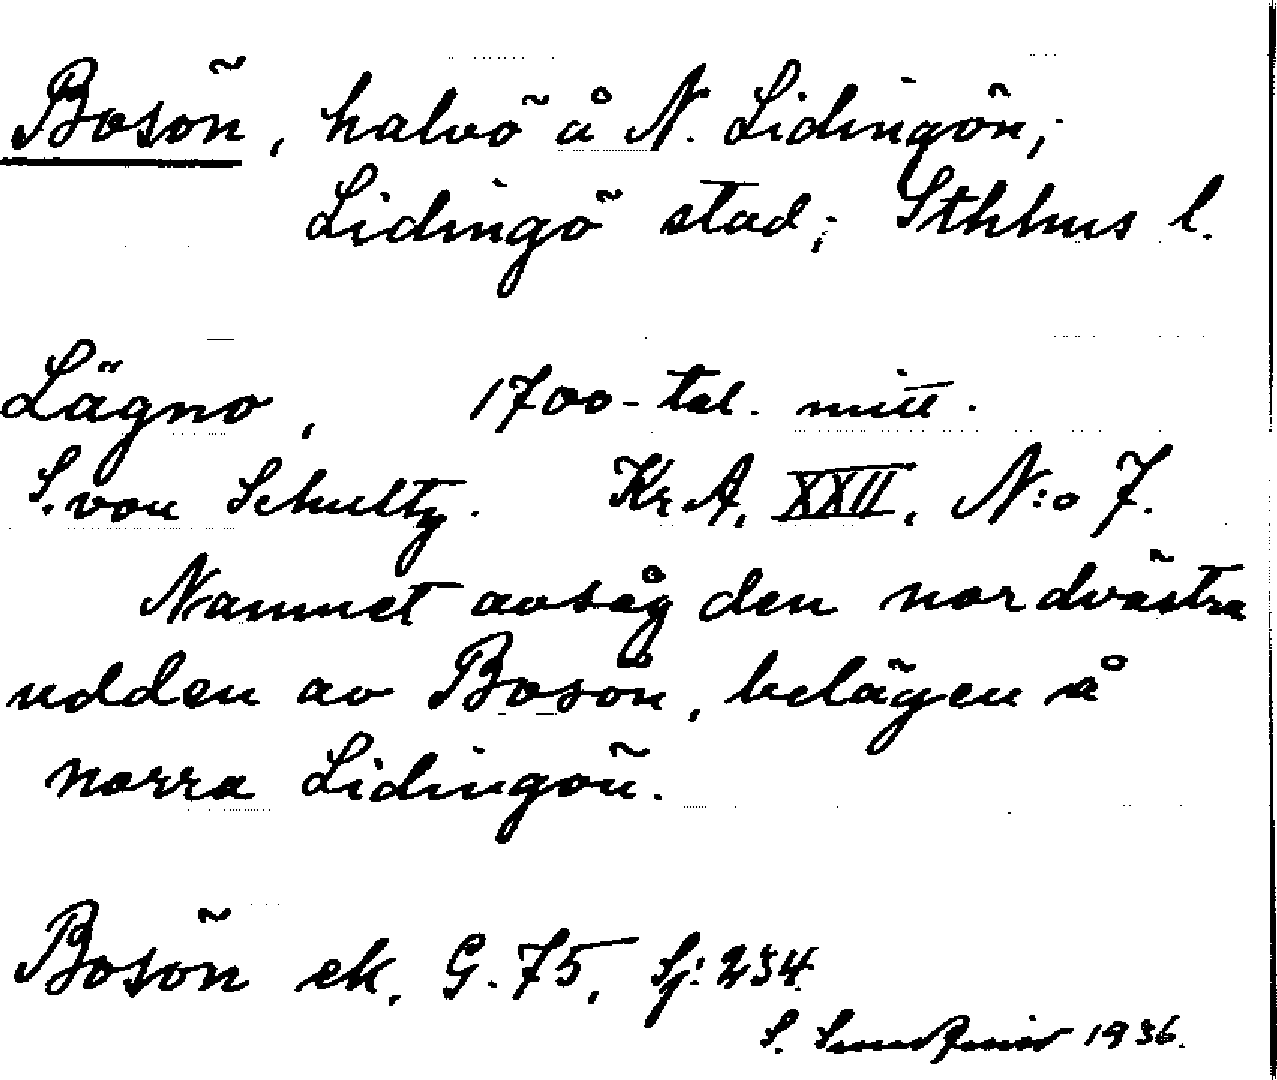 Bosön, halvö å N. Lidingön,
Lidingö stad; Sthlms l.
Lägno, 1700-tal. mitt.
S. von Schultz. Kr A. XXII, N:o 7.
Namnet avsåg den nordvästra
udden av Bosön, belägen å
norra Lidingön.
Bosön ek. G. 75, Sj: 234.
S. 1936.